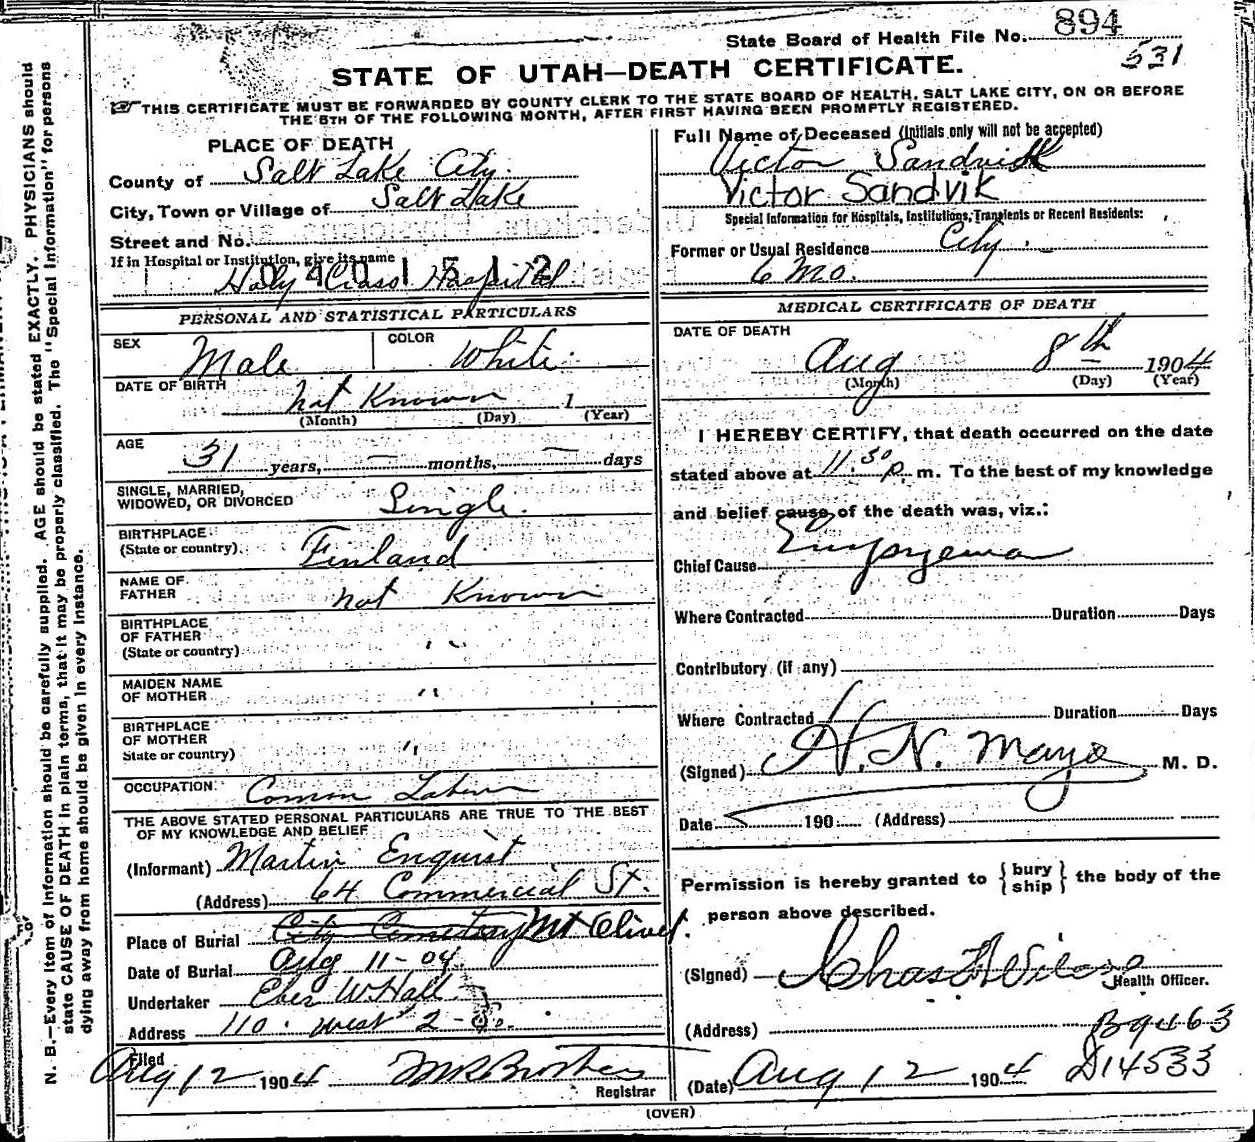 894
State Board of Health File No.
531
STATE OF UTAH—DEATH CERTIFICATE.
THIS CERTIFICATE MUST BE FORWARDED BY COUNTY CLERK TO THE STATE BOARD OF HEALTH, SALT LAKE CITY, ON OR BEFORE
THE 5TH OF THE FOLLOWING MONTH, AFTER FIRST HAVING BEEN PROMPTLY REGISTERED.
N. B.—Every item of information should be carefully supplied. AGE should be stated EXACTLY. PHYSICIANS should
state CAUSE OF DEATH in plain terms, that it may be properly classified. The "Special Information" for persons
dying away from home should be given in every instance.
PLACE OF DEATH
County of Salt Lake City.
City, Town or Village of Salt Lake
Street and No.
If in Hospital or Institution, give its name
0401512
Holy Cross Hospital
PERSONAL AND STATISTICAL PARTICULARS
SEX Male COLOR White
DATE OF BIRTH Not Known 1
(Month) (Day) (Year)
AGE 31 years, — months, — days
SINGLE, MARRIED,
WIDOWED, OR DIVORCED Single.
BIRTHPLACE
(State or country) Finland
NAME OF
FATHER not Known
BIRTHPLACE
OF FATHER
(State or country) "
MAIDEN NAME
OF MOTHER "
BIRTHPLACE
OF MOTHER
State or country) "
OCCUPATION Comon Labor
THE ABOVE STATED PERSONAL PARTICULARS ARE TRUE TO THE BEST
OF MY KNOWLEDGE AND BELIEF
(Informant) Martin Enquist
(Address) 64 Commercial St.
Place of Burial City Cemetery Mt Olivet.
Date of Burial Aug 11-04
Undertaker Eber W. Hall
Address 110 west 2 - So.
Filed
Aug 12 1904
Registrar
Full Name of Deceased (Initials only will not be accepted)
Victor Sandvick
Victor Sandvik
Special Information for Hospitals, Institutions, Transients or Recent Residents:
Former or Usual Residence City.
6 Mo.
MEDICAL CERTIFICATE OF DEATH
DATE OF DEATH
Aug 8th 1904
(Month) (Day) (Year)
I HEREBY CERTIFY, that death occurred on the date
stated above at 11.30 P. m. To the best of my knowledge
and belief cause of the death was, viz.:
Chief Cause
Where Contracted Duration Days
Contributory (if any)
Where Contracted Duration Days
(Signed) H. N. Mayo M. D.
Date 190 (Address)
Permission is hereby granted to { bury
ship } the body of the
person above described.
(Signed) Chas
Health Officer.
(Address)
B9463
(Date) Aug 12 1904 D14533
(OVER)